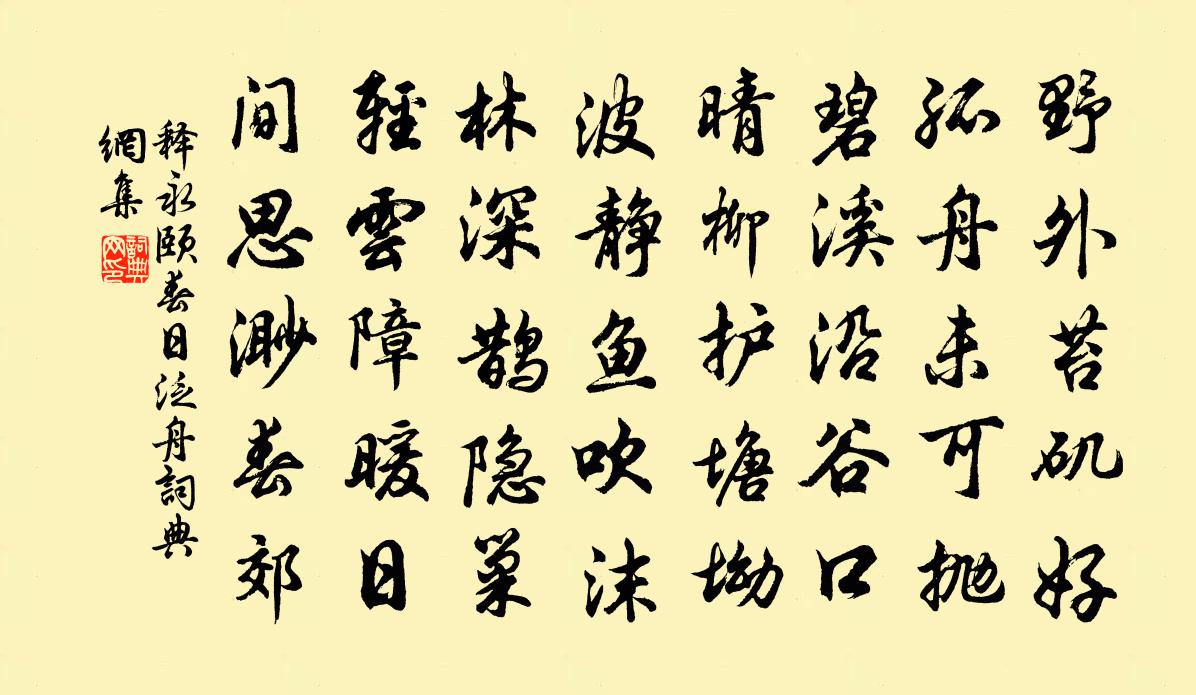 野外苔矶好
孤舟未可抛
碧溪沿谷口
晴柳护塘坳
波静鱼吹沫
林深鹊隐巢
轻雲障暖日
间思渺春郊
释永颐春日泛舟詞典
網集
詞典
网印